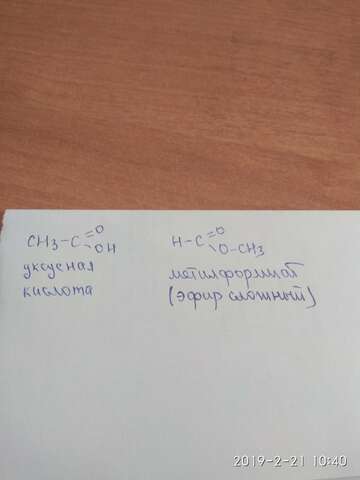 CH3-C=O
OH
уксусная
кислота
H-C=O
O-CH3
метилформиат
(эфир сложный)
2019-2-21 10:40